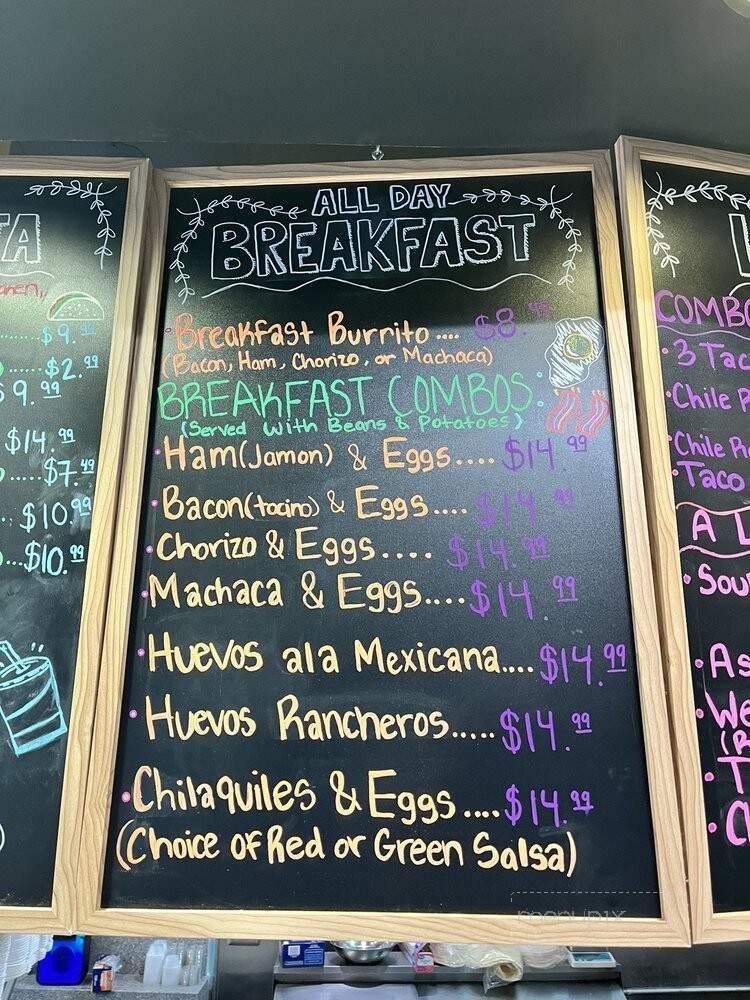 TA
$9.
$2.99
$9.99
$14.99
$7.49
$10.99
$10.99
ALL DAY
BREAKFAST
• Breakfast Burrito.... $8.
(Bacon, Ham, Chorizo, or Machaca)
BREAKFAST COMBOS
(Served with Beans & Potatoes)
• Ham(Jamon) & Eggs.... $14.99
• Bacon(tocino) & Eggs.... $14.99
• Chorizo & Eggs.... $14.99
• Machaca & Eggs.... $14.99
• Huevos ala Mexicana.... $14.99
• Huevos Rancheros..... $14.99
• Chilaquiles & Eggs.... $14.99
(Choice of Red or Green Salsa)
COMBO
• 3 Tac
• Chile
• Chile
• Taco
A L
• Sou
• As
• We
menupix